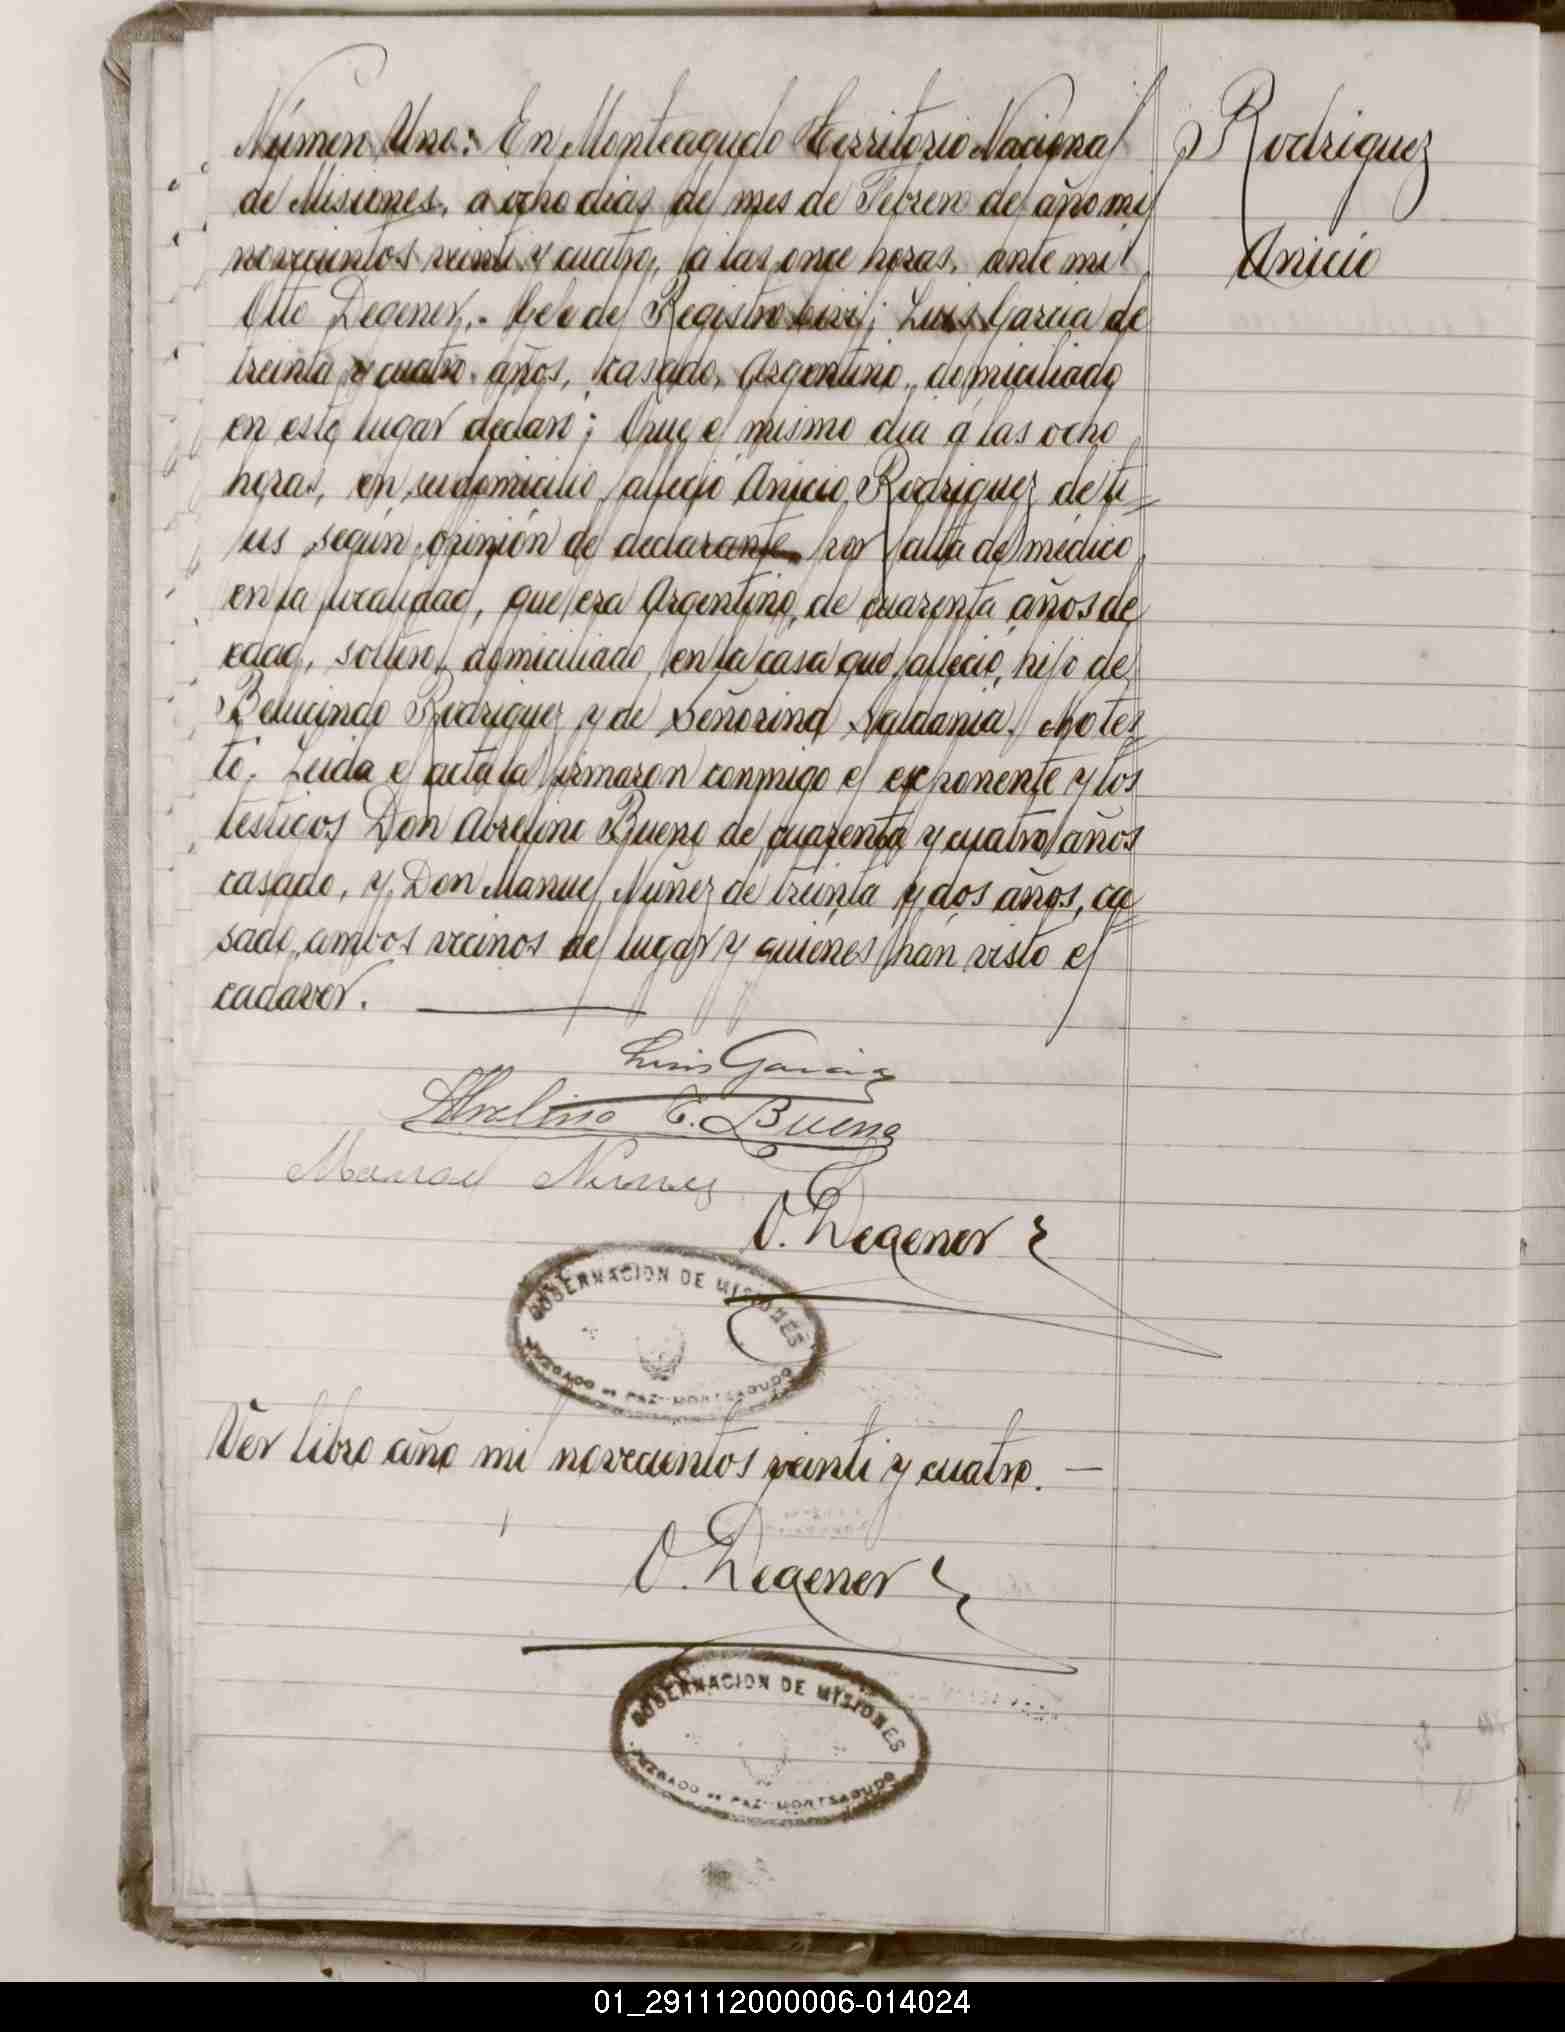 Número Uno: En Monteagudo Territorio Nacional
Rodriguez
de Misiones, a ocho dias del mes de Febrero del año mil
novecientos veinti y cuatro, a las once horas, ante mi
Anicio
Otto Degener, Jefe del Registro Civil; Luis Garcia de
treinta y cuatro años, casado, Argentino, domiciliado
en este lugar declaró; Que el mismo dia á las ocho
horas, en su domicilio falleció Anicio Rodriguez de ti=
sis según opinión del declarante por falta de médico
en la localidad, que era Argentino, de cuarenta años de
edad, soltero, domiciliado en la casa que falleció, hijo de
Belucindo Rodriguez y de Señorina Saldania. No tes=
tó. Leida el acta la firmaron conmigo el exponente y los
testigos Don Avelino Bueno de cuarenta y cuatro años
casado, y Don Manuel Nuñez de treinta y dos años, ca=
sado, ambos vecinos del lugar y quienes han visto el
cadaver.
Luis Garcia
Avelino C. Bueno
Manuel Nunez
O. Degener
GOBERNACION DE MISIONES
JUZGADO DE PAZ MONTEAGUDO
Ver libro año mil novecientos veinti y cuatro. —
O. Degener
GOBERNACION DE MISIONES
JUZGADO DE PAZ MONTEAGUDO
01_291112000006-014024